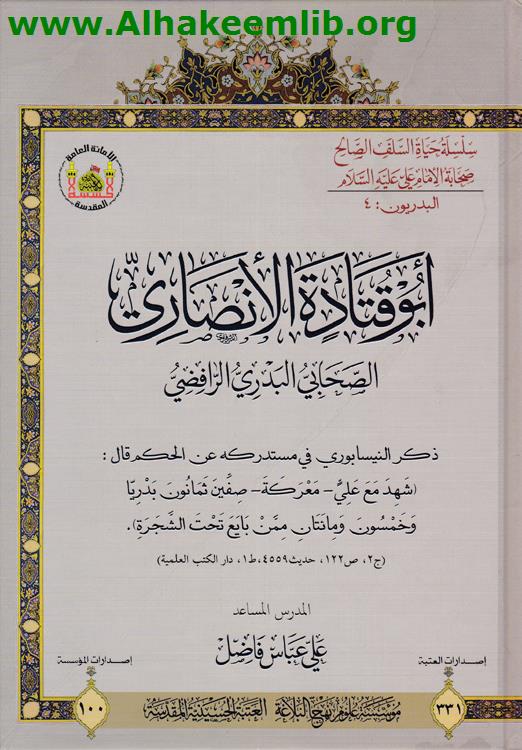 www.Alhakeemlib.org
سلسلة حياة السلف الصالح
صحابة الإمام علي عليه السلام
البدريون: ٤
الأمانة العامة
المقدسة
أبو قتادة الأنصاري
الصحابي البدري الرافضي
ذكر النيسابوري في مستدركه عن الحكم قال:
(شَهِدَ مَعَ عَلِيٍّ - مَعْرَكَةَ - صِفِّينَ ثَمَانُونَ بَدْرِيًّا
وَخَمْسُونَ وَمِائَتَانِ مِمَّنْ بَايَعَ تَحْتَ الشَّجَرَةِ).
(ج٢، ص١٢٢، حديث٤٥٥٩، ط١، دار الكتب العلمية)
المدرس المساعد
علي عباس فاضل
إصدارات العتبة
إصدارات المؤسسة
٣٣١
مؤسسة علوم نهج البلاغة العتبة الحسينية المقدسة
١٠٠